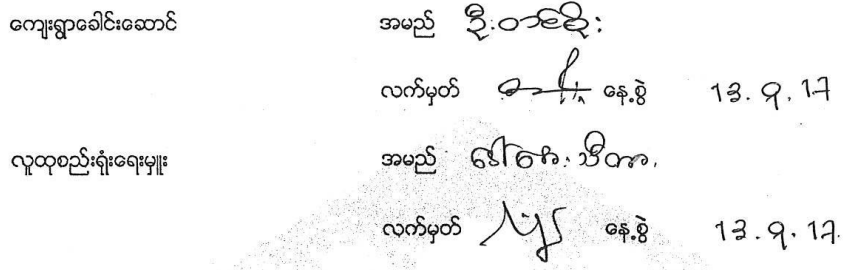 ကျေးရွာခေါင်းဆောင် အမည် ဦး
လက်မှတ် နေ့စွဲ 13.9.17
လူထုစည်းရုံးရေးမှူး အမည် ဒေါ်
လက်မှတ် နေ့စွဲ 13.9.17.